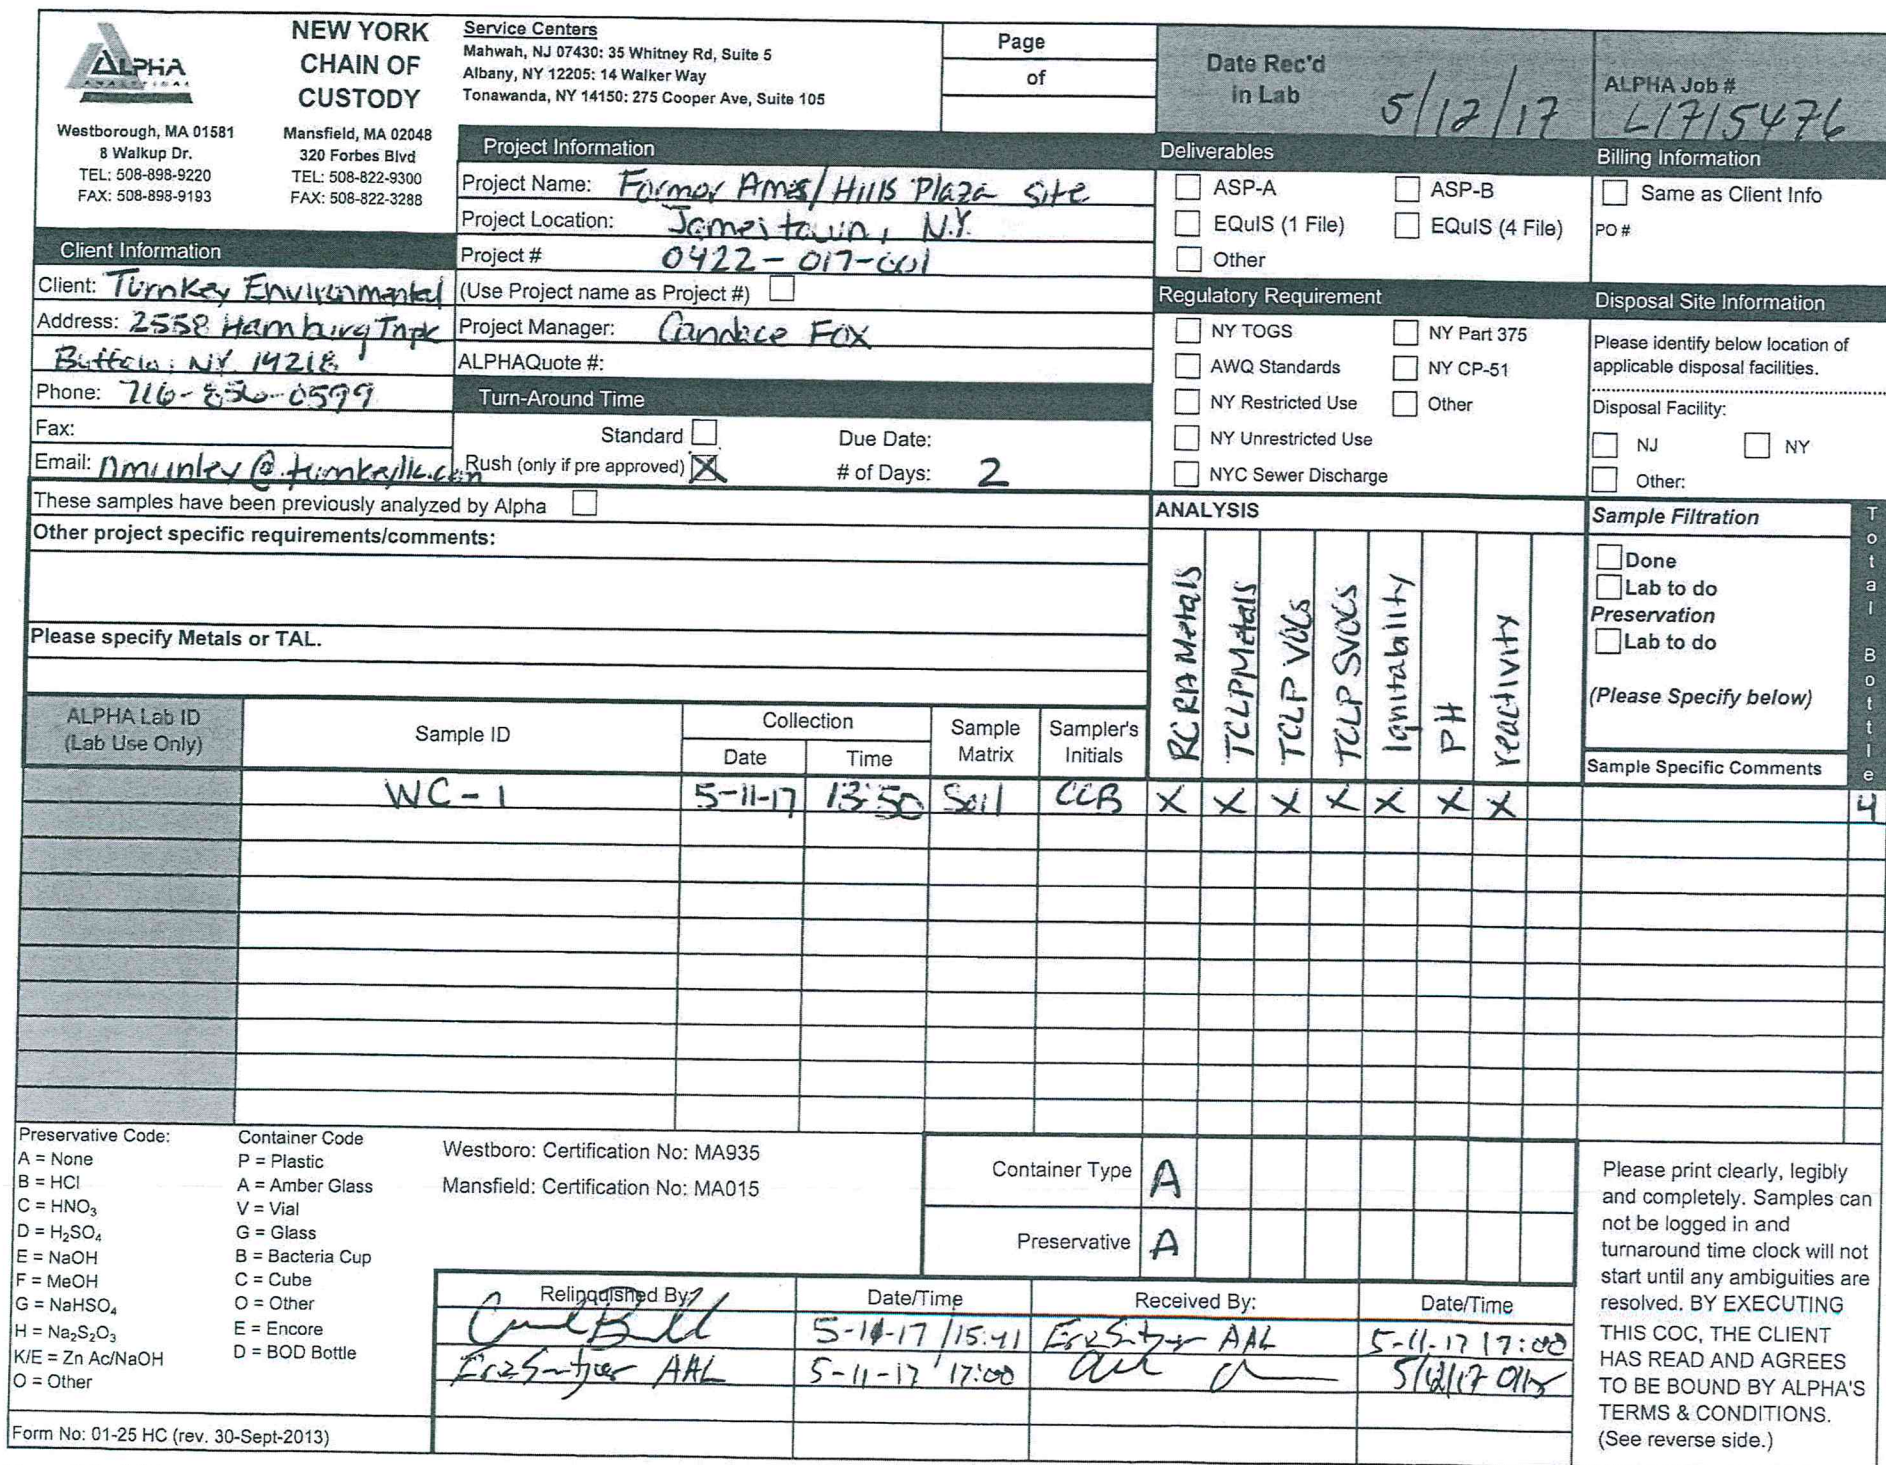 ALPHA
ANALYTICAL
NEW YORK
CHAIN OF
CUSTODY
Westborough, MA 01581
8 Walkup Dr.
TEL: 508-898-9220
FAX: 508-898-9193
Mansfield, MA 02048
320 Forbes Blvd
TEL: 508-822-9300
FAX: 508-822-3288
Service Centers
Mahwah, NJ 07430: 35 Whitney Rd, Suite 5
Albany, NY 12205: 14 Walker Way
Tonawanda, NY 14150: 275 Cooper Ave, Suite 105
Page
of
Date Rec'd
in Lab
5/12/17
ALPHA Job #
L1715476
Project Information
Project Name: Former Ames/Hills Plaza Site
Project Location: Jamestown, N.Y.
Project # 0422-017-001
(Use Project name as Project #)
Project Manager: Candace Fox
ALPHAQuote #:
Turn-Around Time
Standard
Due Date:
Rush (only if pre approved) X
# of Days: 2
Client Information
Client: Turnkey Environmental
Address: 2558 Hamburg Tnpk
Buffalo, NY 14218
Phone: 716-856-0599
Fax:
Email: nmunley@turnkeyllc.com
Deliverables
ASP-A
ASP-B
EQuIS (1 File)
EQuIS (4 File)
Other
Billing Information
Same as Client Info
PO #
Regulatory Requirement
NY TOGS
NY Part 375
AWQ Standards
NY CP-51
NY Restricted Use
Other
NY Unrestricted Use
NYC Sewer Discharge
Disposal Site Information
Please identify below location of
applicable disposal facilities.
Disposal Facility:
NJ
NY
Other:
These samples have been previously analyzed by Alpha
Other project specific requirements/comments:
Please specify Metals or TAL.
ANALYSIS
RCRA Metals
TCLP Metals
TCLP VOCs
TCLP SVOCs
Ignitability
PH
reactivity
Sample Filtration
Done
Lab to do
Preservation
Lab to do
(Please Specify below)
Total Bottle
ALPHA Lab ID
(Lab Use Only)
Sample ID
Collection
Date
Time
Sample
Matrix
Sampler's
Initials
Sample Specific Comments
WC-1 5-11-17 13:50 Soil CCB X X X X X X X 4
Preservative Code:
A = None
B = HCl
C = HNO₃
D = H₂SO₄
E = NaOH
F = MeOH
G = NaHSO₄
H = Na₂S₂O₃
K/E = Zn Ac/NaOH
O = Other
Container Code
P = Plastic
A = Amber Glass
V = Vial
G = Glass
B = Bacteria Cup
C = Cube
O = Other
E = Encore
D = BOD Bottle
Westboro: Certification No: MA935
Mansfield: Certification No: MA015
Container Type A
Preservative A
Relinquished By:
Date/Time
Received By:
Date/Time
5-11-17/15:41
AAL
5-11-17 17:00
AAL
5-11-17 17:00
5/12/17
Please print clearly, legibly
and completely. Samples can
not be logged in and
turnaround time clock will not
start until any ambiguities are
resolved. BY EXECUTING
THIS COC, THE CLIENT
HAS READ AND AGREES
TO BE BOUND BY ALPHA'S
TERMS & CONDITIONS.
(See reverse side.)
Form No: 01-25 HC (rev. 30-Sept-2013)